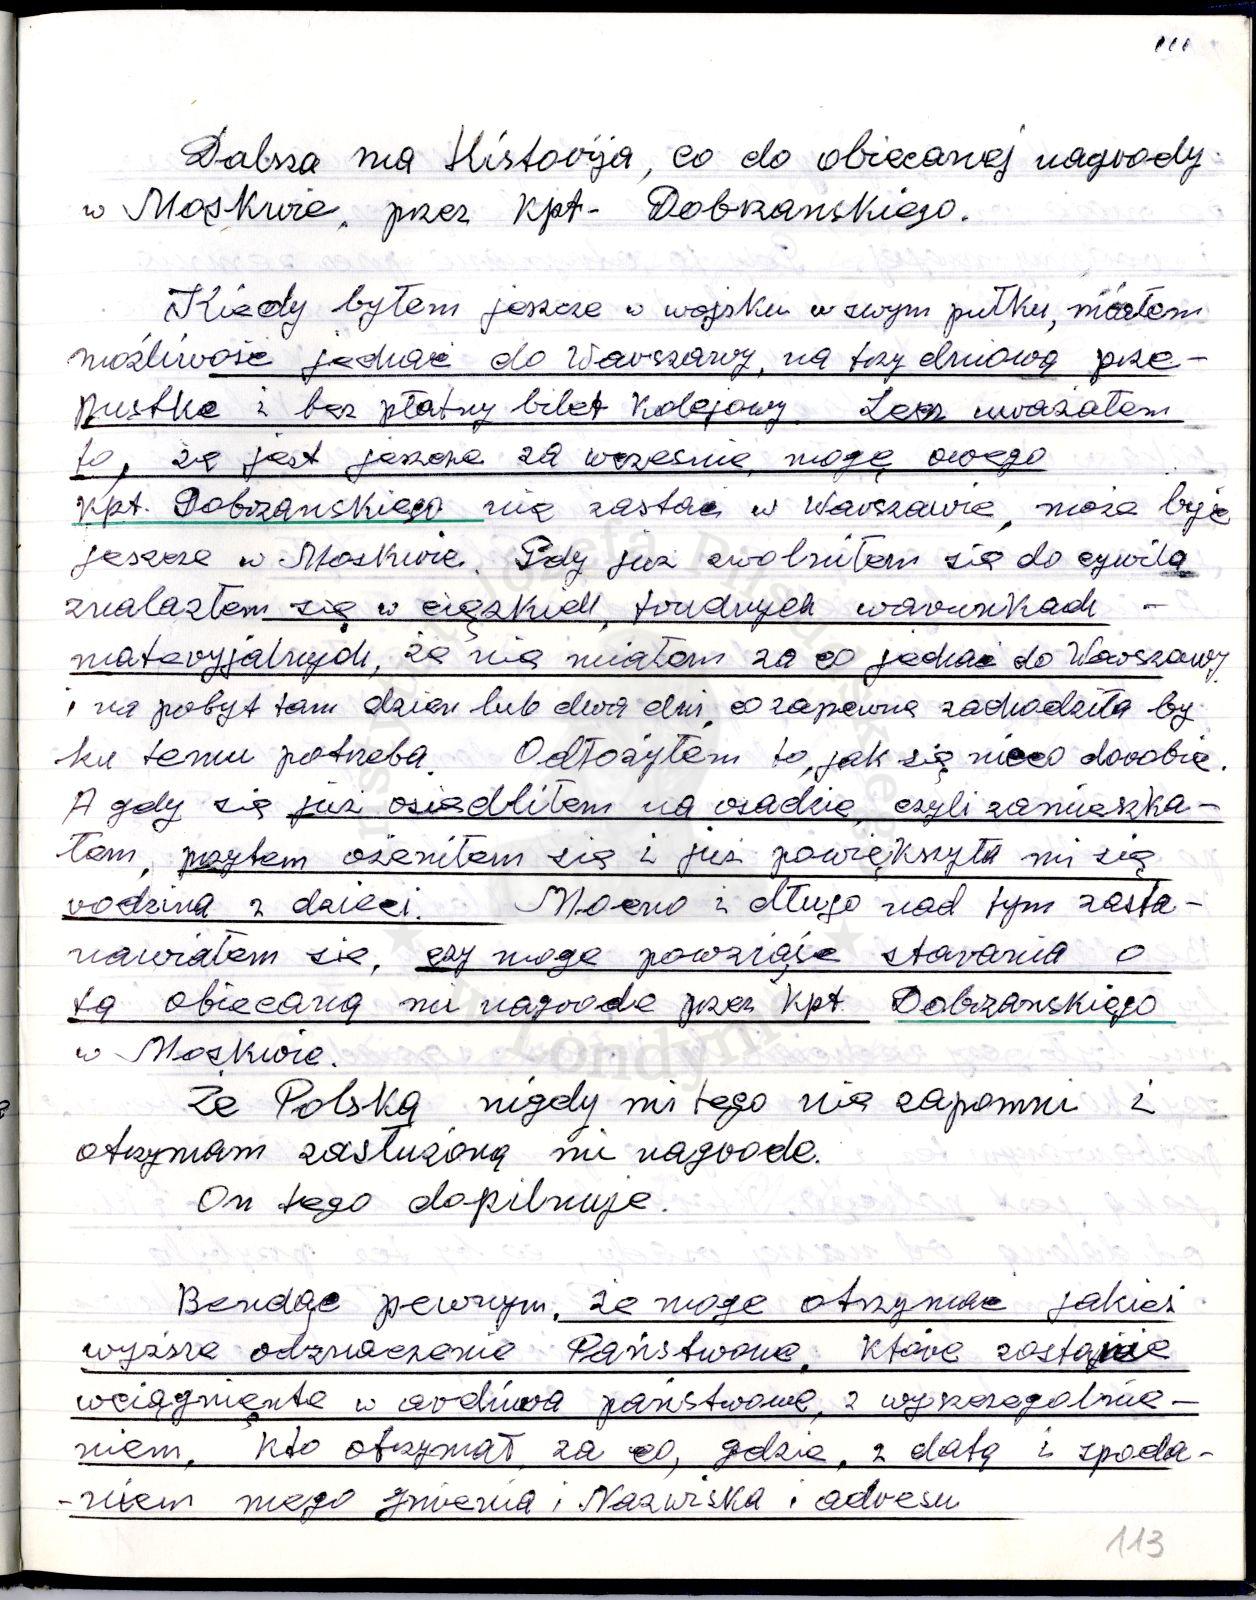 111
Dalsza ma Historija, co do obiecanej nagrody
w Moskwie, przez Kpt- Dobrzanskiego.
Kiedy byłem jeszcze w wojsku w swym pułku, miałem
możliwość jechać do Warszawy, na trzy dniową prze-
pustkę i bez płatny bilet kolejowy. Lecz uważałem
to, że jest jeszcze za wczesnie, mogę owego
Kpt. Dobrzanskiego nie zastać w Warszawie, może być
jeszcze w Moskwie. Gdy już zwolniłem się do cywila
znalazłem się w ciężkich, trudnych warunkach -
materyjalnych, że nie miałem za co jechać do Warszawy
i na pobyt tam dzien lub dwa dni, co zapewne zachodziła by
ku temu potrzeba. Odłożyłem to, jak się nieco dorobię.
A gdy się już osiedliłem na osadzie, czyli zamieszka-
łem, przytem ożeniłem się i już powiększyła mi się
rodzina z dzieci. Mocno i długo nad tym zasta-
nawiałem się, czy mogę powziąść starania o
tą obiecaną mi nagrodę przez Kpt. Dobrzanskiego
w Moskwie.
Że Polska nigdy mi tego nie zapomni i
otrzymam zasłużoną mi nagrodę.
On tego dopilnuje.
Bendąc pewnym, że mogę otrzymać jakieś
wyższe odznaczenie Państwowe, które zostanie
wciągnięnte w archiwa państwowe, z wyszczegolnie-
niem, kto otrzymał, za co, gdzie, z datą i zpoda-
-niem mego Imienia i Nazwiska i adresu
113
Instytut Józefa Piłsudskiego
w Londynie